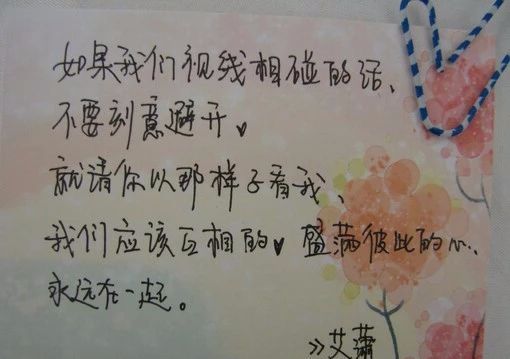 如果我们视线相碰的话、
不要刻意避开♥
就请你以那样子看我、
我们应该互相的♥ 盛满彼此的心..
永远在一起。
>>艾萧